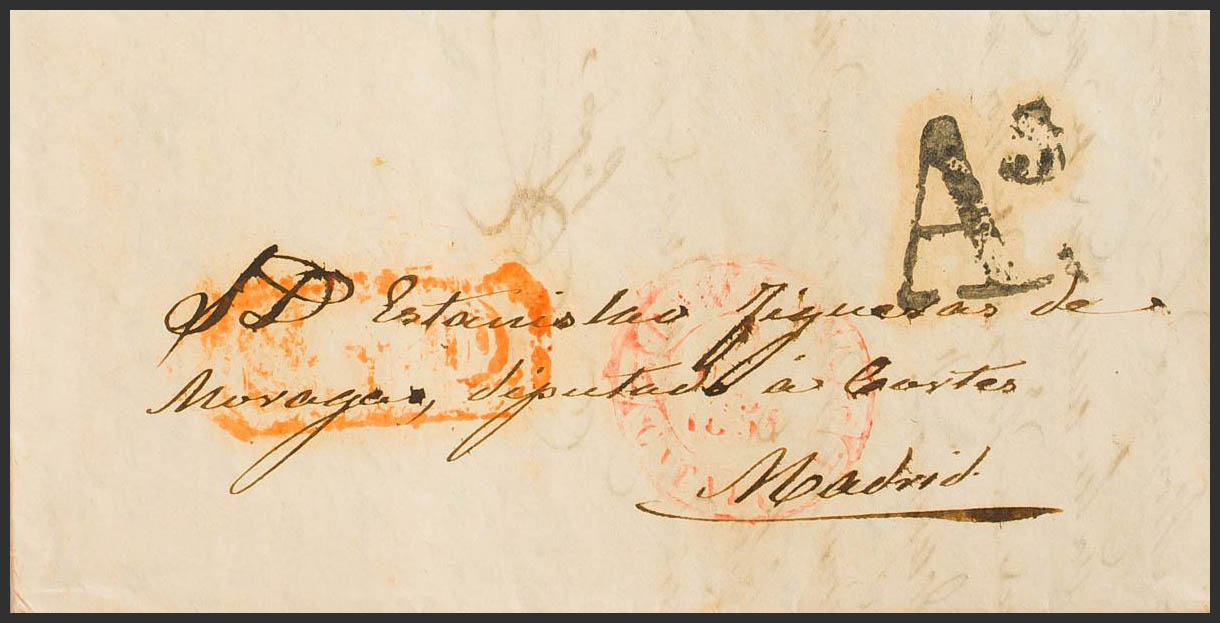 As
S D Estanislao Figueras de
Moragas, diputado à Cortes
Madrid